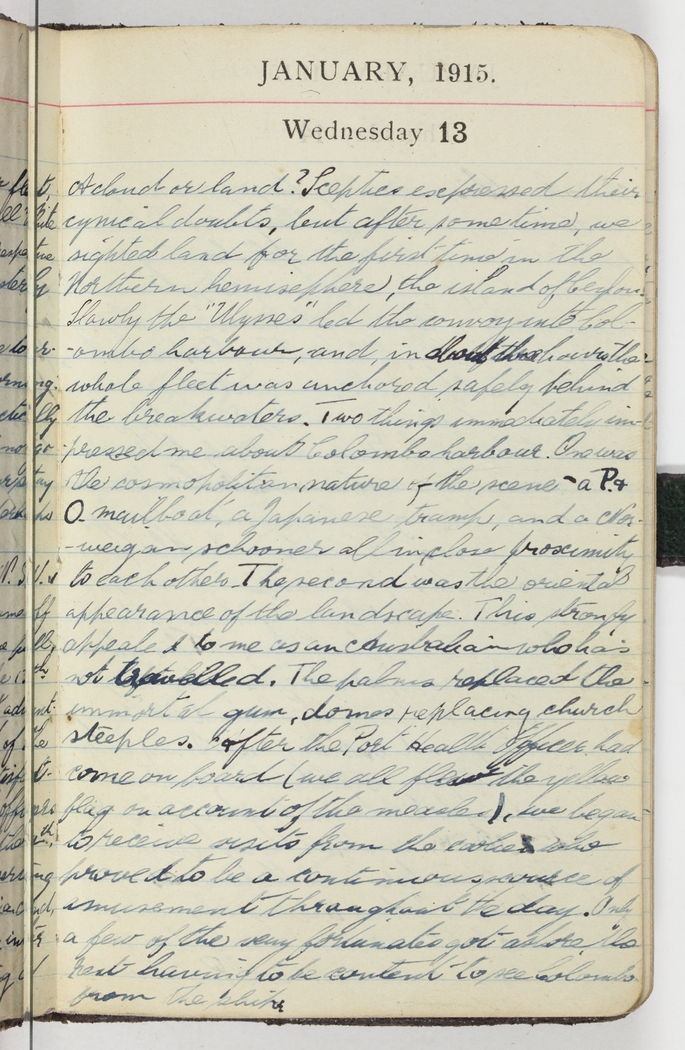 JANUARY, 1915.
Wednesday 13
A cloud or land? Sceptics expressed their
cynical doubts, but after some time, we
sighted land for the first time in the
Northern hemisephere, the island of Ceylon.
Slowly the "Ulysses" led the convoy into Col-
-ombo harbour, and, in about three hours the
whole fleet was anchored safely behind
the breakwaters. Two things immediately im-
pressed me about Colombo harbour. One was
the cosmopolitan nature of the scene - a P. &
O. mailboat, a Japanese tramp, and a Nor-
-weigan schooner all in close proximity
to each other. The second was the oriental
appearance of the landscape. This strongly
appealed to me as an Australian who has
not travelled. The palms replaced the
immortal gum, domes replacing church
steeples. After the Port Health Officer had
come on board (we all flew the yellow
flag on account of the measles), we began
to receive visits from the coolies who
proved to be a continuous source of
amusement throughout the day. Only
a few of the very fortunates got ashore, the
rest having to be content to see Colombo
from the ship.